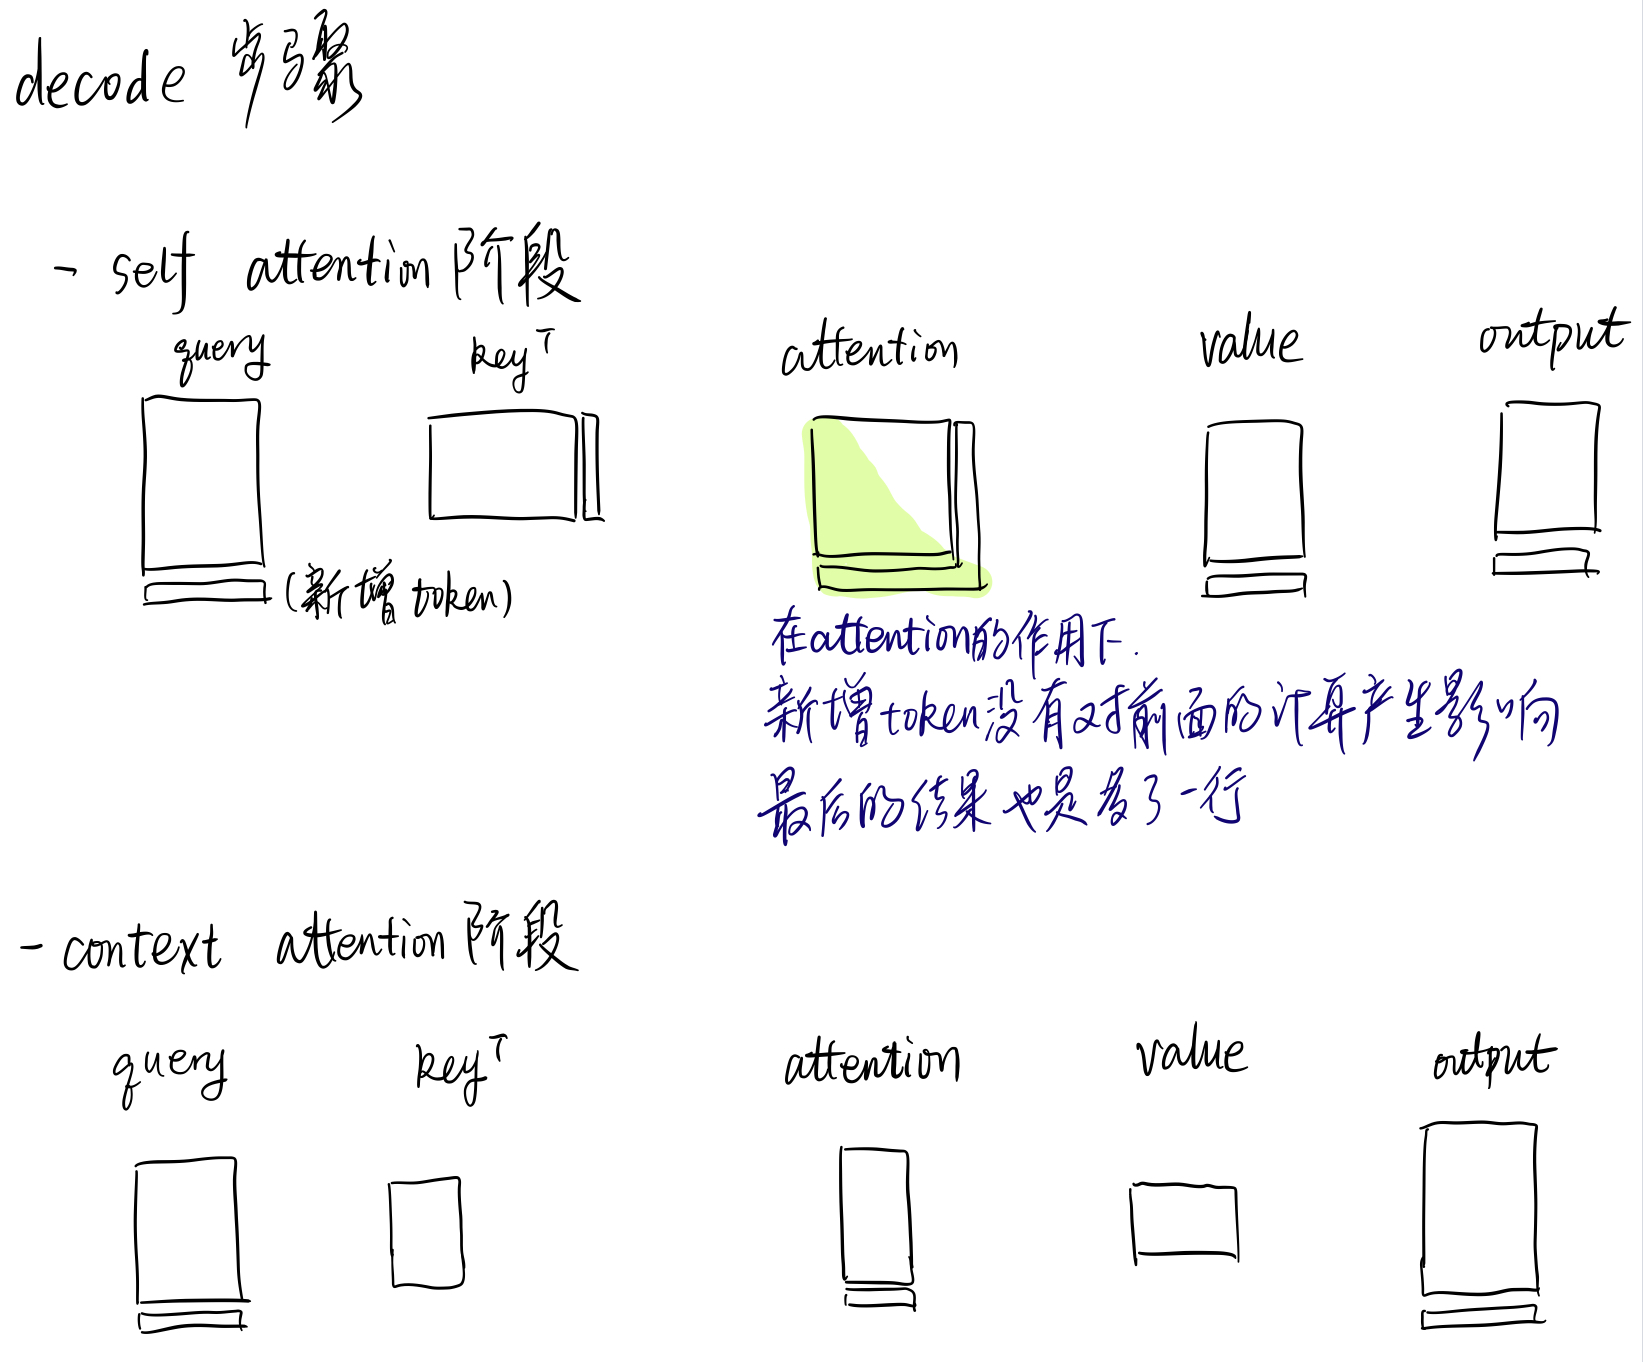 decode 步骤
- self attention 阶段
query keyᵀ attention value output
(新增 token)
在attention的作用下.
新增token没有对前面的计算产生影响
最后的结果也是多了一行
- context attention 阶段
query keyᵀ attention value output